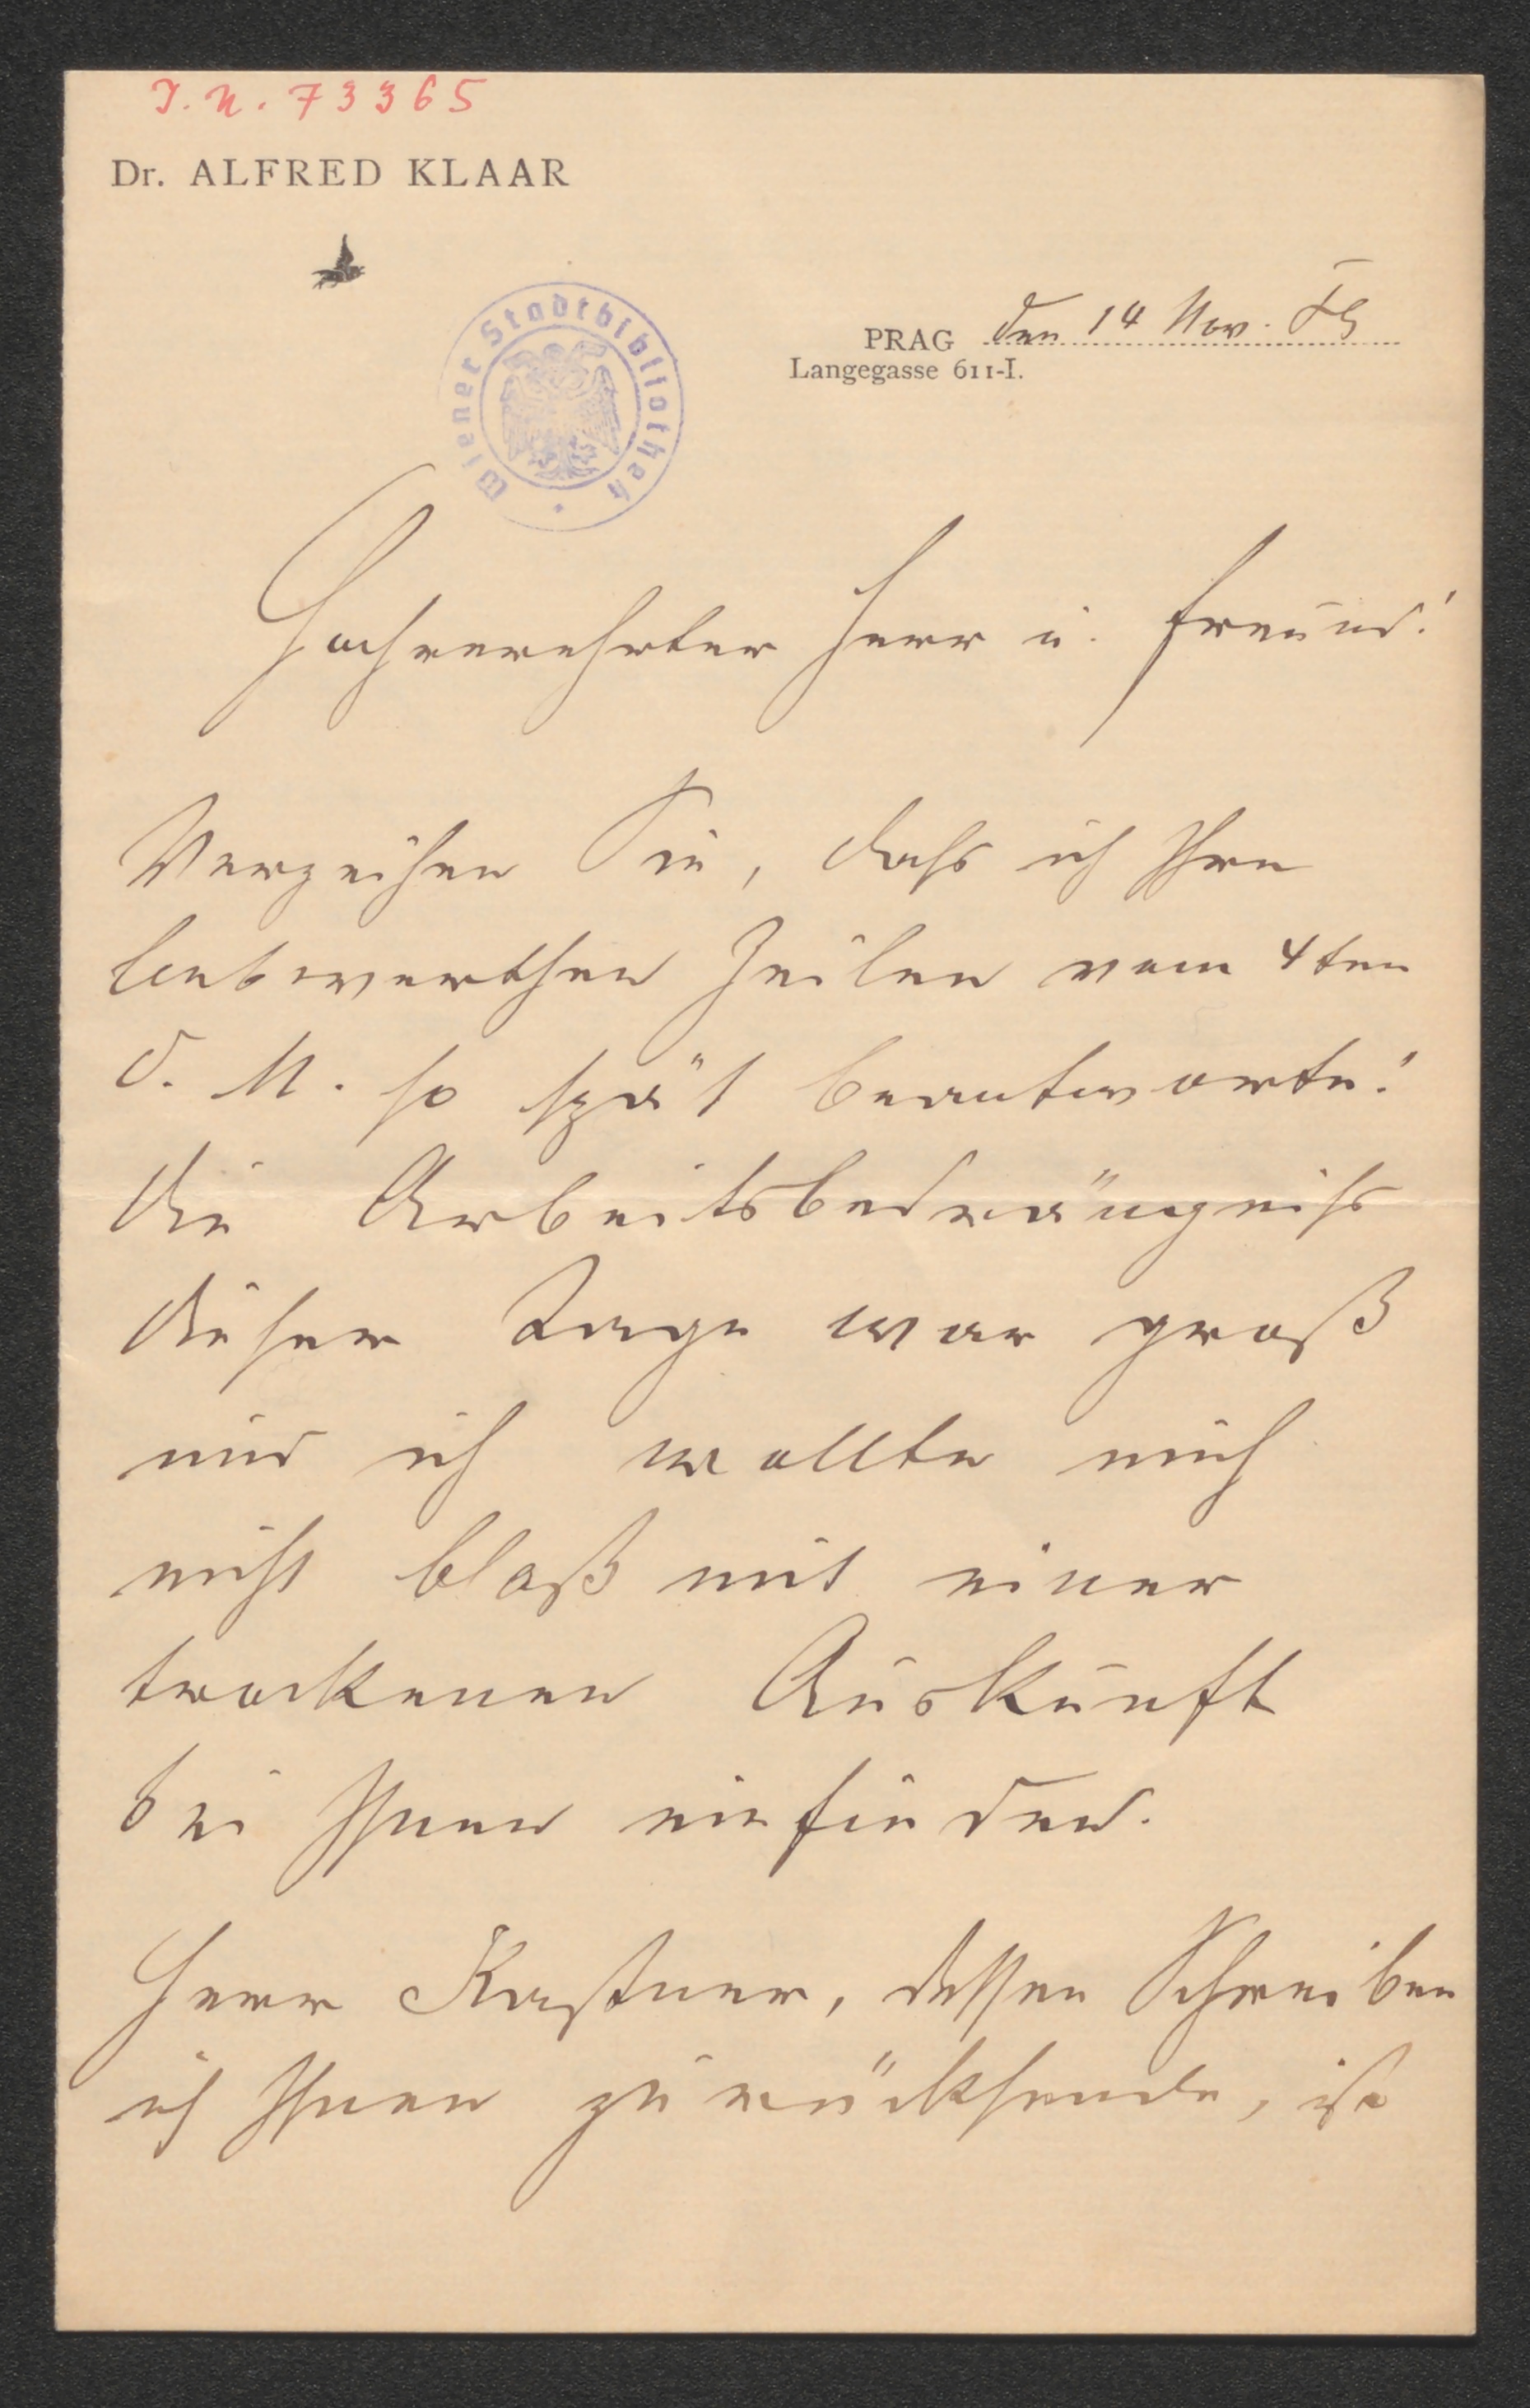 I. N. 73365
Dr. ALFRED KLAAR
Wiener Stadtbibliothek
PRAG den 14 Nov. 89
Langegasse 611-I.
Hochverehrter Herr u. Freund!
Verzeihen Sie, dass ich Ihre
liebwerthen Zeilen vom 4ten
d. M. so spät beantworte!
Die Arbeitsbedrängniss
dieser Tage war groß
und ich wollte mich
nicht bloß mit einer
trockenen Auskunft
bei Ihnen einfinden.
Herr Kastner, dessen Schreiben
ich Ihnen zurücksende, ist